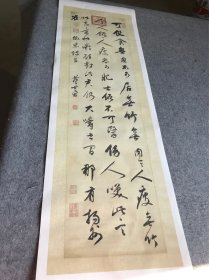 可使食無肉不可居無竹無肉令人瘦無竹
令人俗人瘦尚可肥士俗不可醫傍人笑此言
似高還似癡若對此君仍大嚼世間那有揚州
鶴